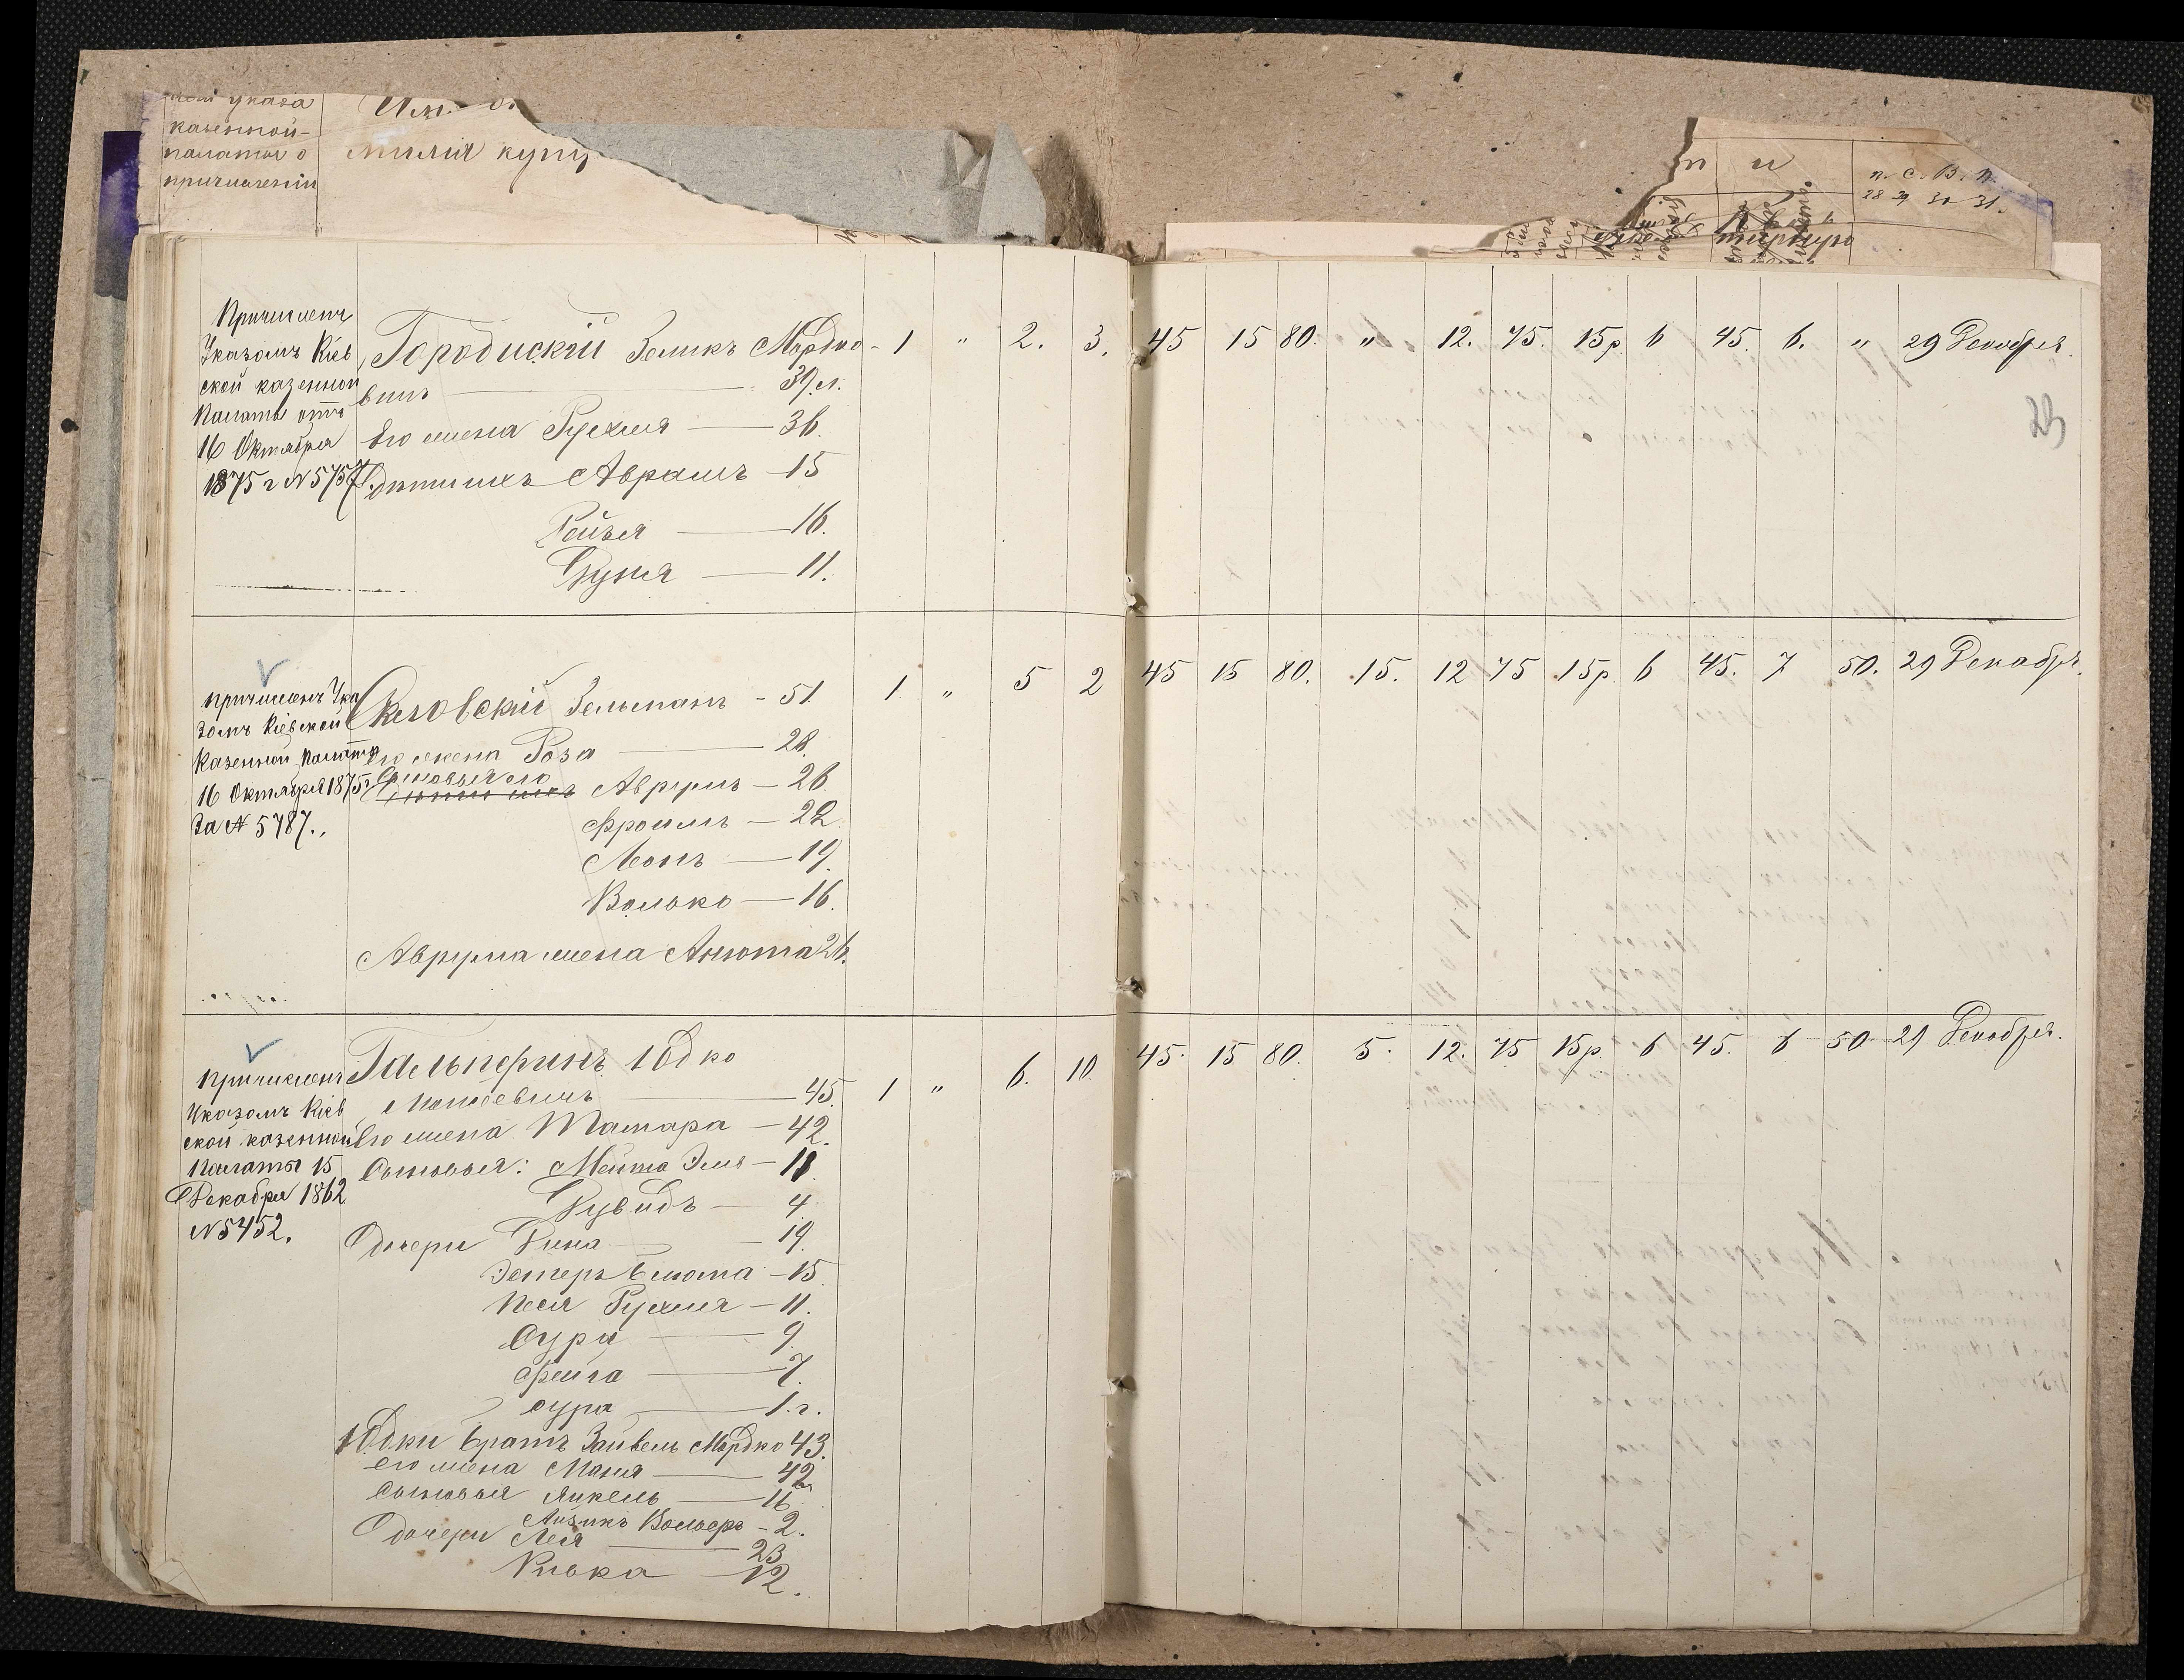 указа
казенной-
палаты о
причислении
милія купц
п и
п. С. В. П.
28 29 30 31.
Причисленъ
Указомъ Кіев
ской казенной
Палаты отъ
16 Октября
1875 г № 5757
Городискій Зеликъ Мордко-
вичъ 39 л.
Его жена Рухля 36.
дѣти ихъ Аврамъ 15
Рейзя 16.
Груня 11.
1 " 2. 3. 45 15 80. " 12. 75. 15р. 6 45. 6. " 29 Декабря.
23
Причисленъ Ука
зомъ Кіевской
Казенной Палаты
16 Октября 1875 г
За № 5787.
Зельманъ - 51.
Его жена Роза 28.
Сыновья его
Аврумъ - 26.
Фроимъ - 22.
Леонъ - 19.
Волько - 16.
Аврума жена Анюта 26.
1. " 5 2 45 15 80. 15. 12 75 15р. 6 45. 7 50. 29 Декабр.
Причисленъ
Указомъ Кіев
ской казенной
Палаты 15
Декабря 1862
№ 5452.
Гальперинъ Юдко
45.
Его жена Тамара - 42.
Сыновья: 11.
Дувидъ 4.
Дочери Дина 19.
Эстеръ Блюма - 15.
Песя Рухля - 11.
Сура 9.
Фейга 7.
Сура 1. г.
Юдки братъ Зайвель Мордко 43.
его жена Маня 42
Сыновья Янкель 16
Айзикъ Вольферъ - 2.
Дочери Лея 23
Ривка 12.
1 " 6. 10. 45. 15 80. 5. 12. 75 15р. 6 45. 6 50 29 Декабря.